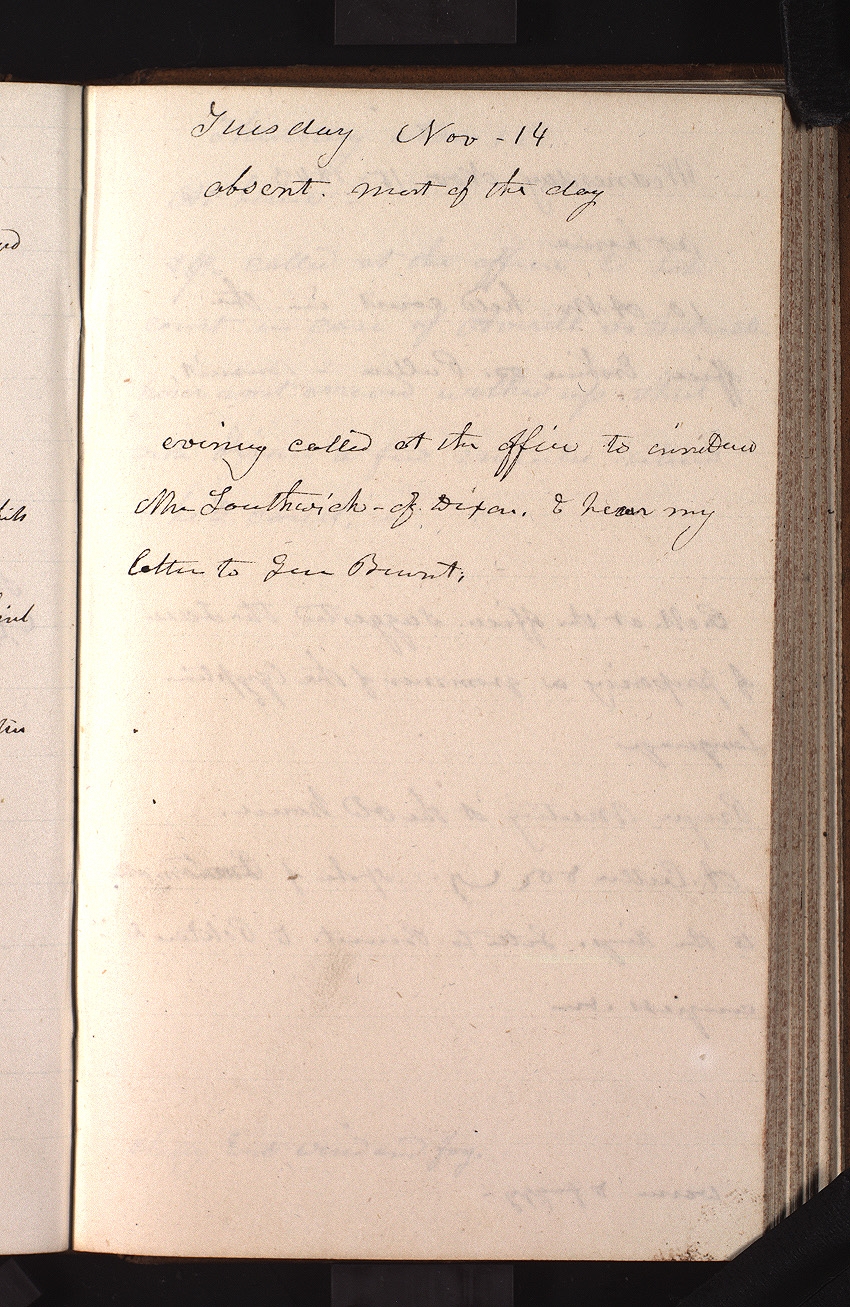 Tuesday Nov - 14
absent. most of the day
evening called at the office to
Mr Southwick - of Dixon. & hear my
letter to Gen Bennt.